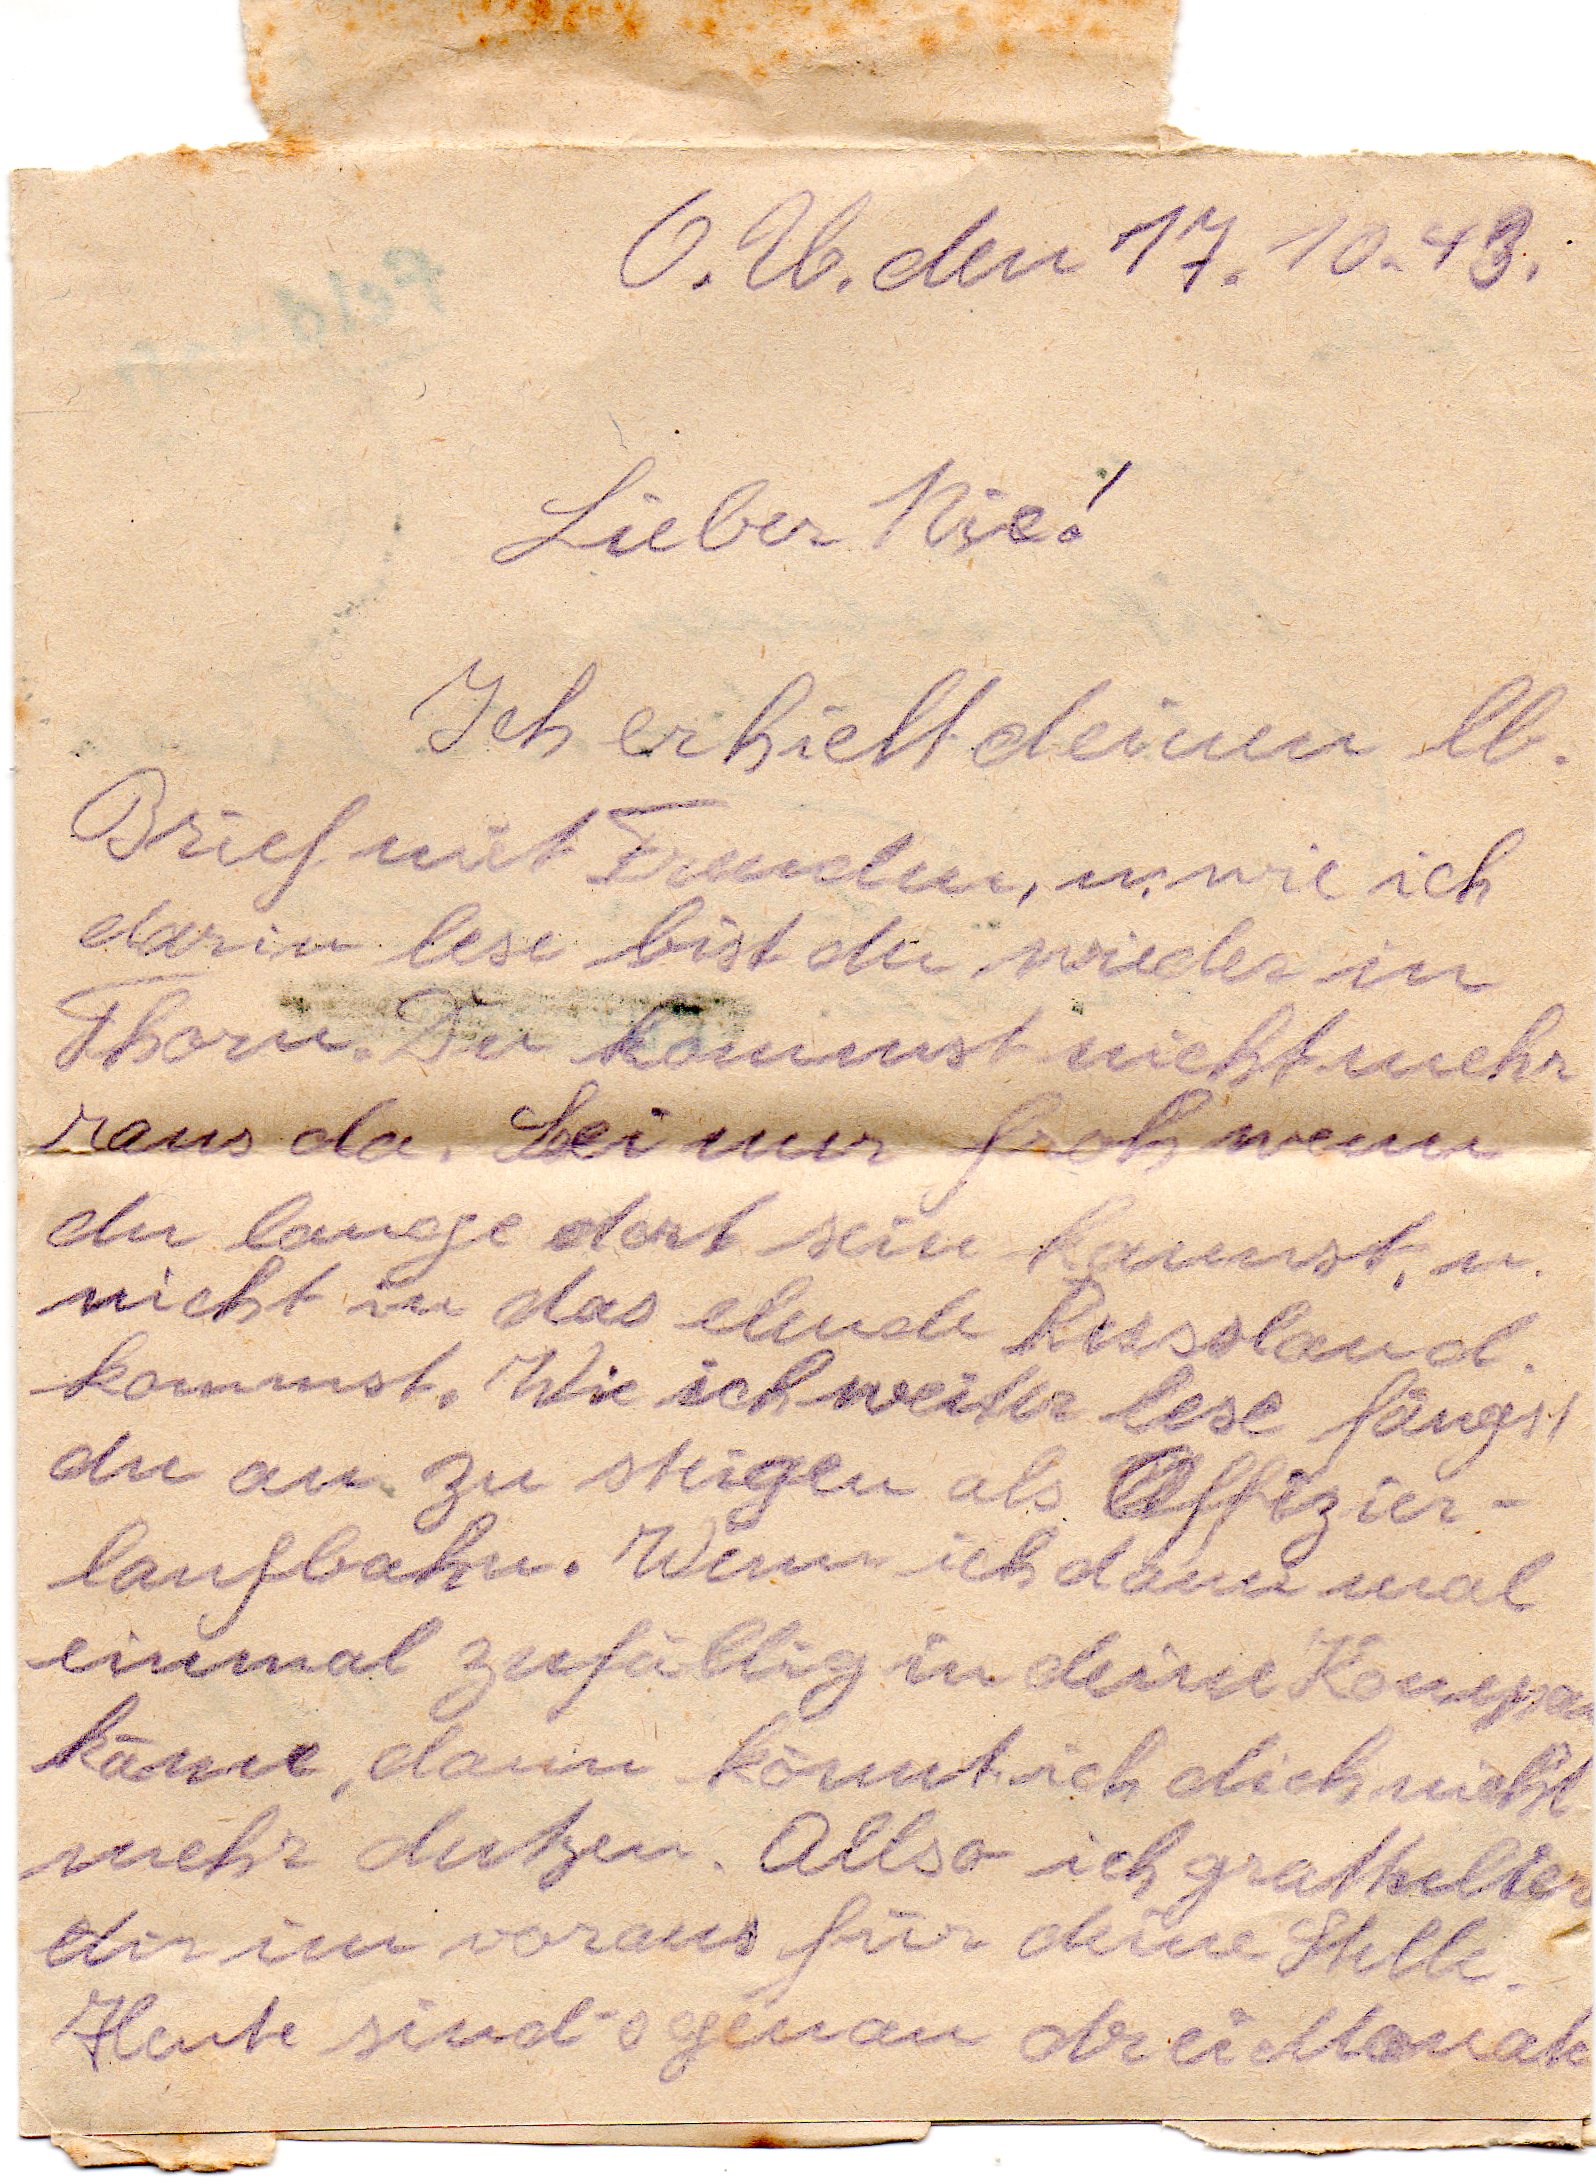 O. U. den 17. 10. 43.
Lieber Nic!
Ich erhielt deinen lb.
Brief mit Freuden, u. wie ich
darin lese bist du wieder in
Thorn. Du kommst nicht mehr
raus da. Sei nur froh wenn
du lange dort sein kannst, u.
nicht in das elende Russland.
kommst. Wie ich weiter lese fängst
du an zu steigen als Offizier-
laufbahn. Wenn ich dann mal
einmal zufällig in deine Kompa
käme, dann könnt ich dich nicht
mehr dutzen. Allso ich grathulier
dir im voraus für deine Stelle.
Heute sind's genau drei Monate